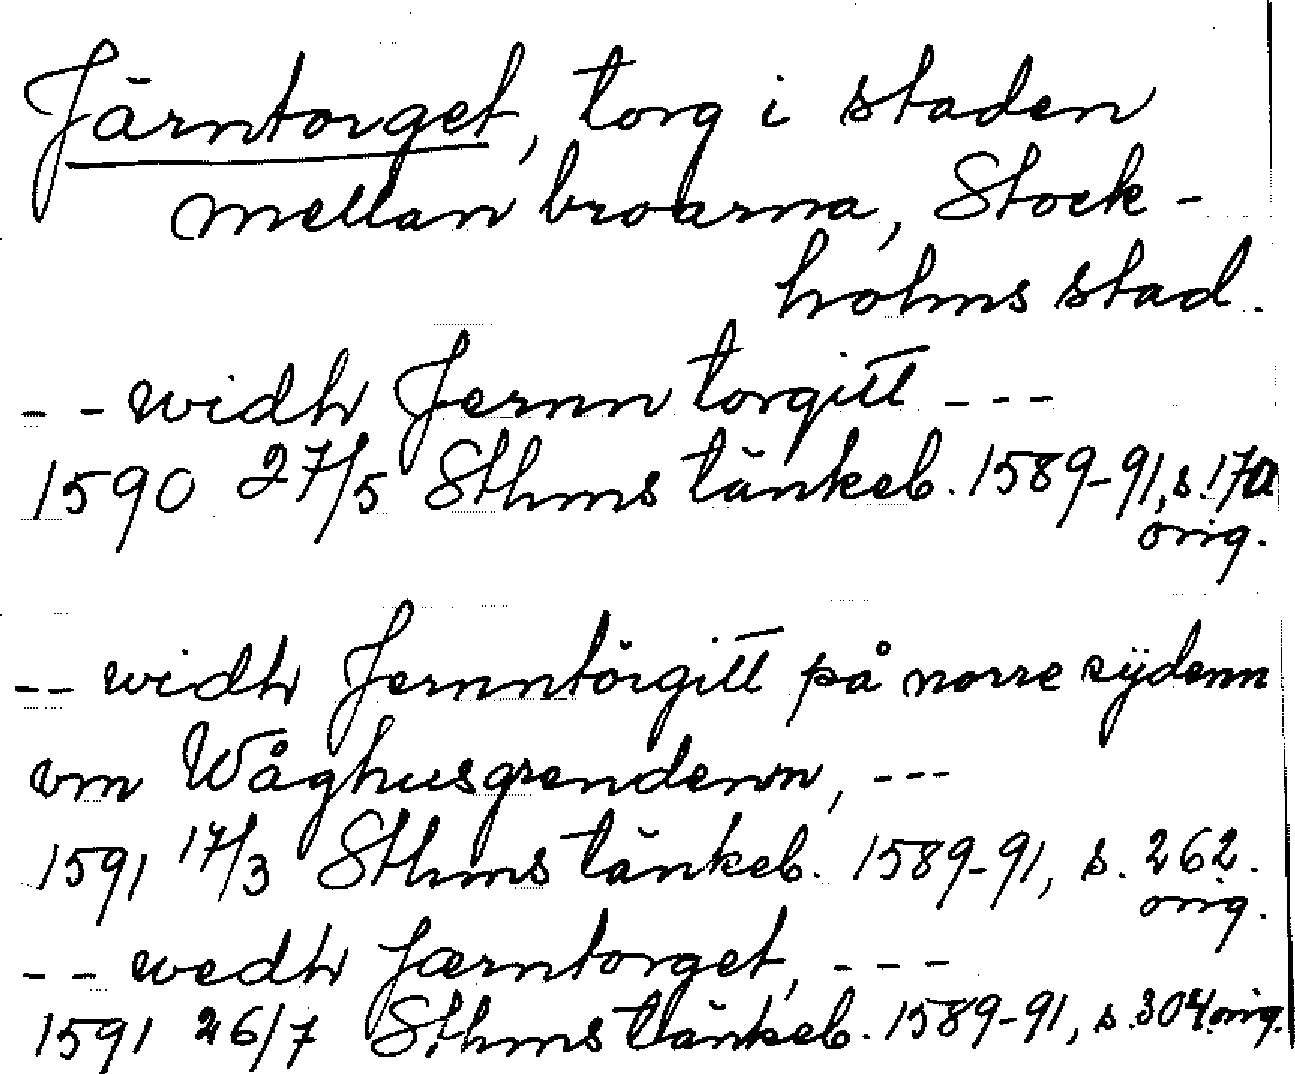 Järntorget, torg i staden
mellan broarna, Stock-
holms stad.
-- widh Jernn torgitt ---
1590 27/5 Sthms tänkeb. 1589-91, s. 170
orig.
-- widh Jernntörgitt på norre sÿdenn
vm Wåghusgrendenn, ---
1591 17/3 Sthms tänkeb. 1589-91, s. 262.
orig.
-- wedh Jærntorget, ---
1591 26/7 Sthms tänkeb. 1589-91, s. 304 orig.